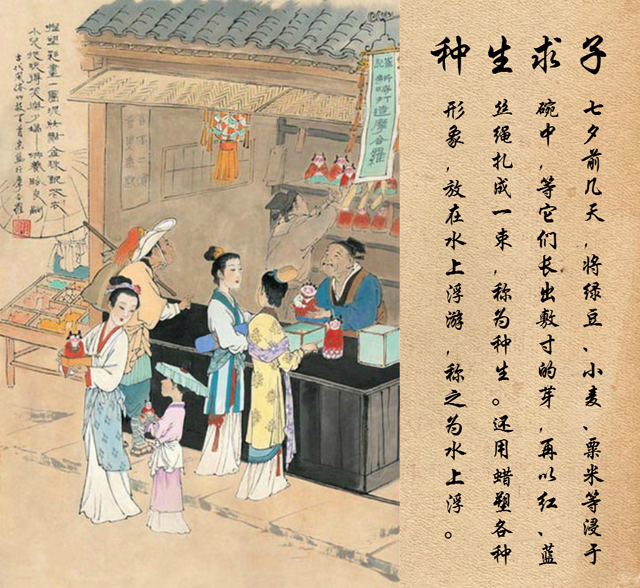 种生求子
七夕前几天，将绿豆、小麦、粟米等浸于
碗中，等它们长出敷寸的芽，再以红、蓝
丝绳扎成一束，称为种生。还用蜡塑各种
形象，放在水上浮游，称之为水上浮。
造摩合罗